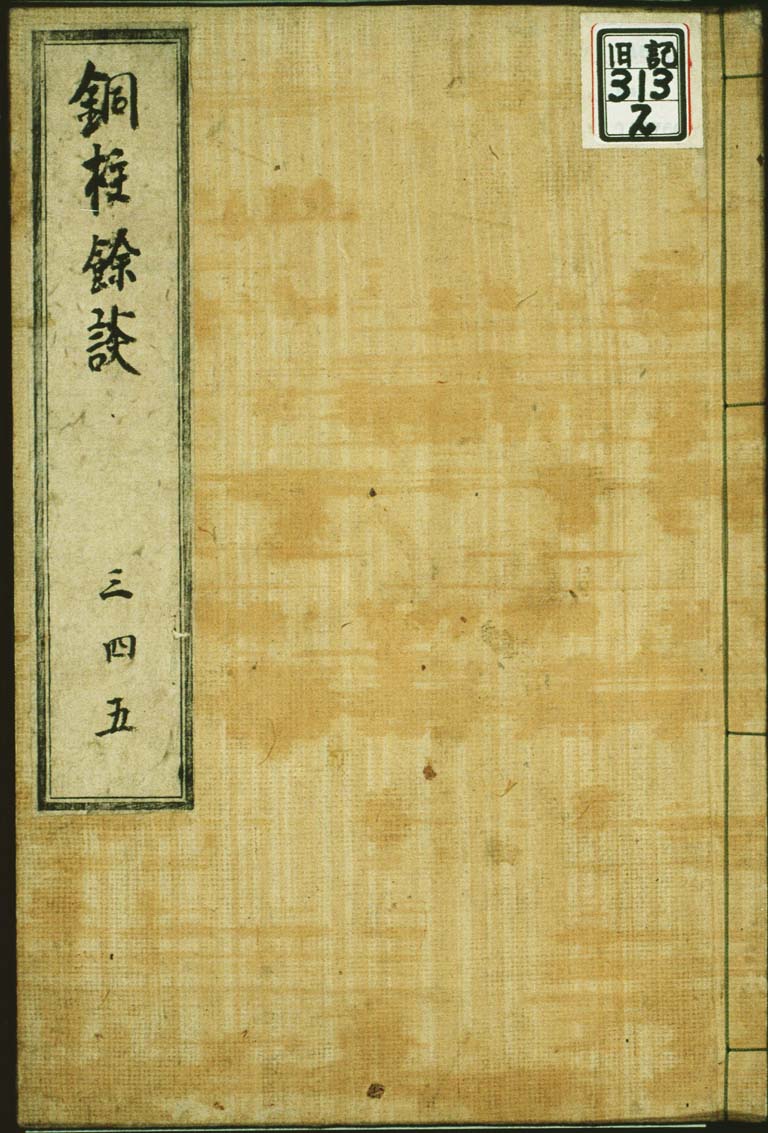 旧記
313
銅柱餘談
三四五